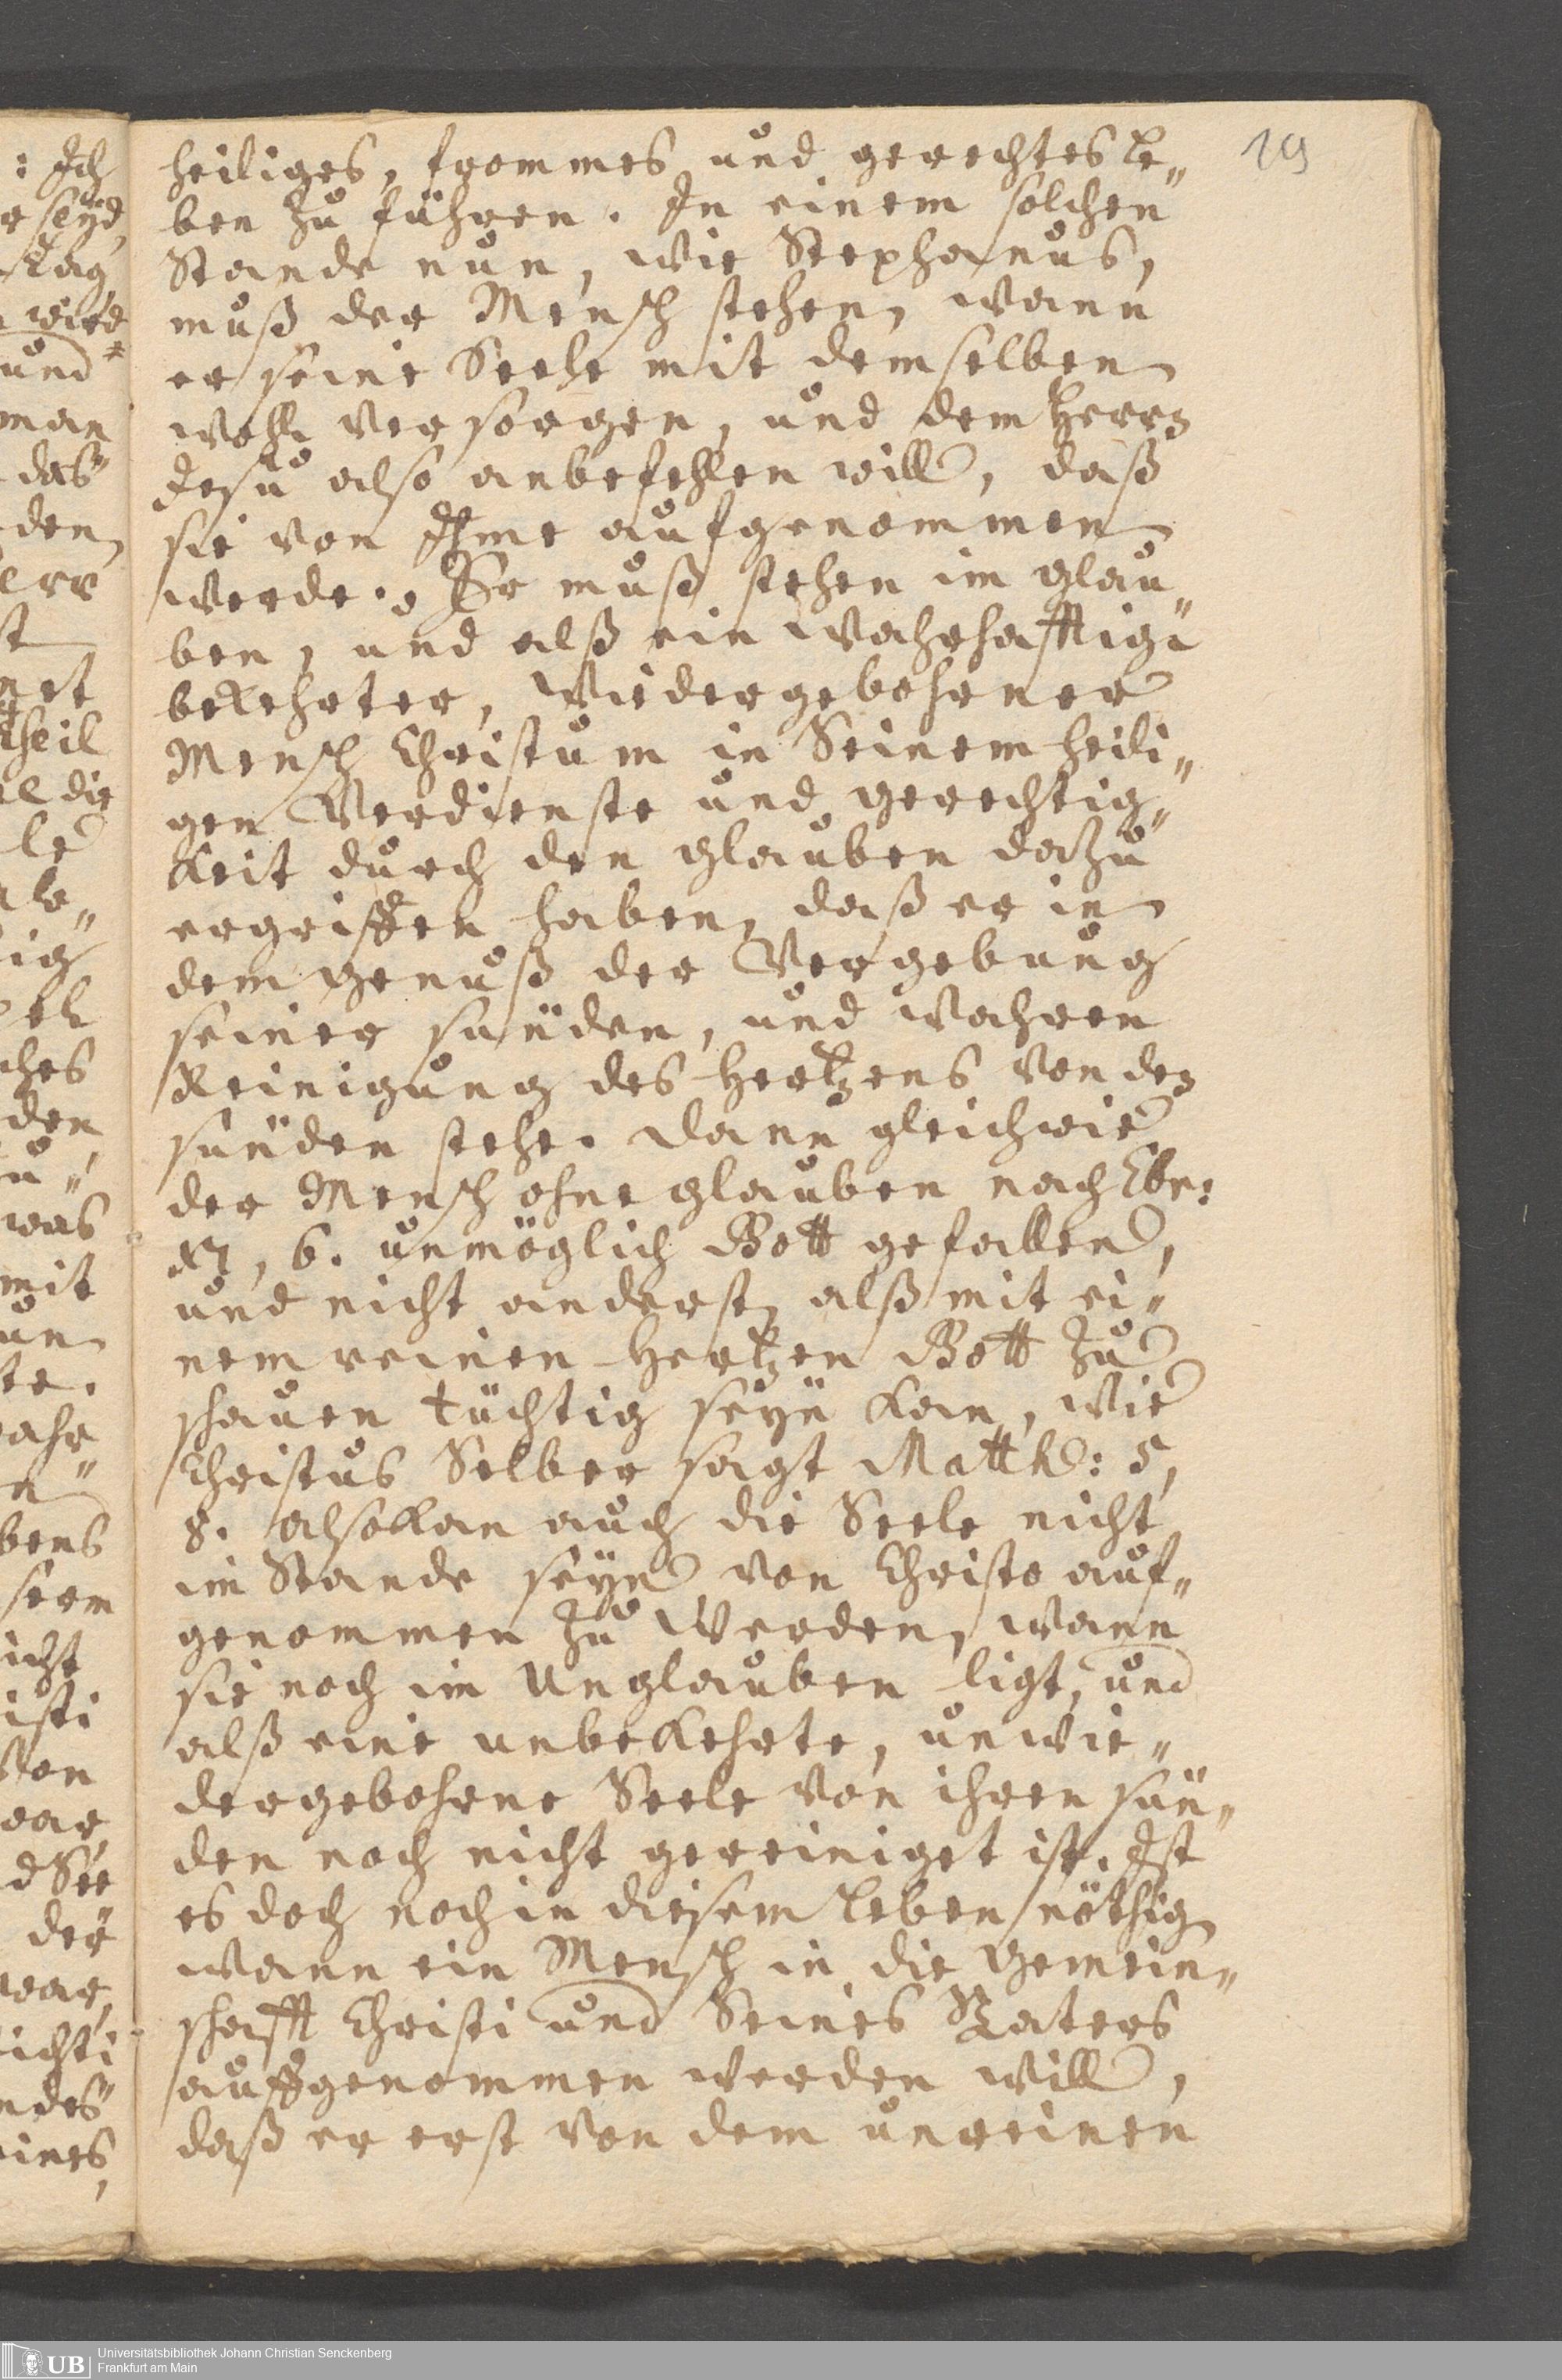 19
heiliges, frommes und gerechtes Le„
ben zu führen. In einem solchen
Stande nun, wie Stephanus,
muß der Mensch stehen, wann
er seine Seele mit demselben
wohl versorgen, und dem Herrn
Jesu also anbefehlen will, daß
sie von Ihme aufgenommen
werde. Er muß stehen im glau„
ben, und alß ein wahrhafftig
bekehrter, widergebohrner
Mensch Christum in Seinem heili„
gen Verdienste und gerechtig„
keit durch den glauben dazu
ergriffen haben, daß er in
dem genuß der Vergebung
seiner sünden, und wahren
Reinigung des Hertzens von den
sünden stehe. Dann gleichwie
der Mensch ohne glauben nach Ebr:
XI, 6. unmöglich Gott gefallen,
und nicht anderst, alß mit ei„
nem reinen Hertzen Gott zu
schauen tüchtig seyn kan, wie
Christus Selber sagt Matth: 5,
8. also kan auch die Seele nicht
im Stande seyn von Christo auf„
genommen zu werden, wann
sie noch im Unglauben ligt, und
alß eine unbekehrte, unwie„
dergebohrne Seele von ihren sün„
den noch nicht gereiniget ist. Ist
es doch noch in diesem Leben nöthig
wann ein Mensch in die Gemein„
schafft Christi und Seines Vaters
auffgenommen werden will,
daß er erst von dem unreinen
UB Universitätsbibliothek Johann Christian Senckenberg
Frankfurt am Main